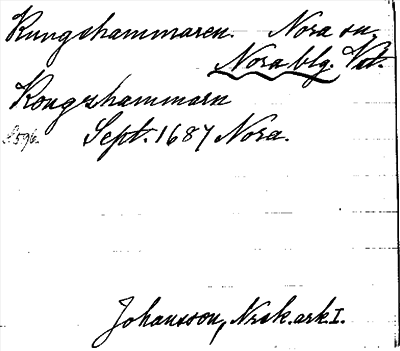 Kungshammaren. Nora sn,
Norabg. Vstm.
Kongzhammarn
S. 596. Sept. 1687 Nora.
Johansson, Nrsk. ark. I.